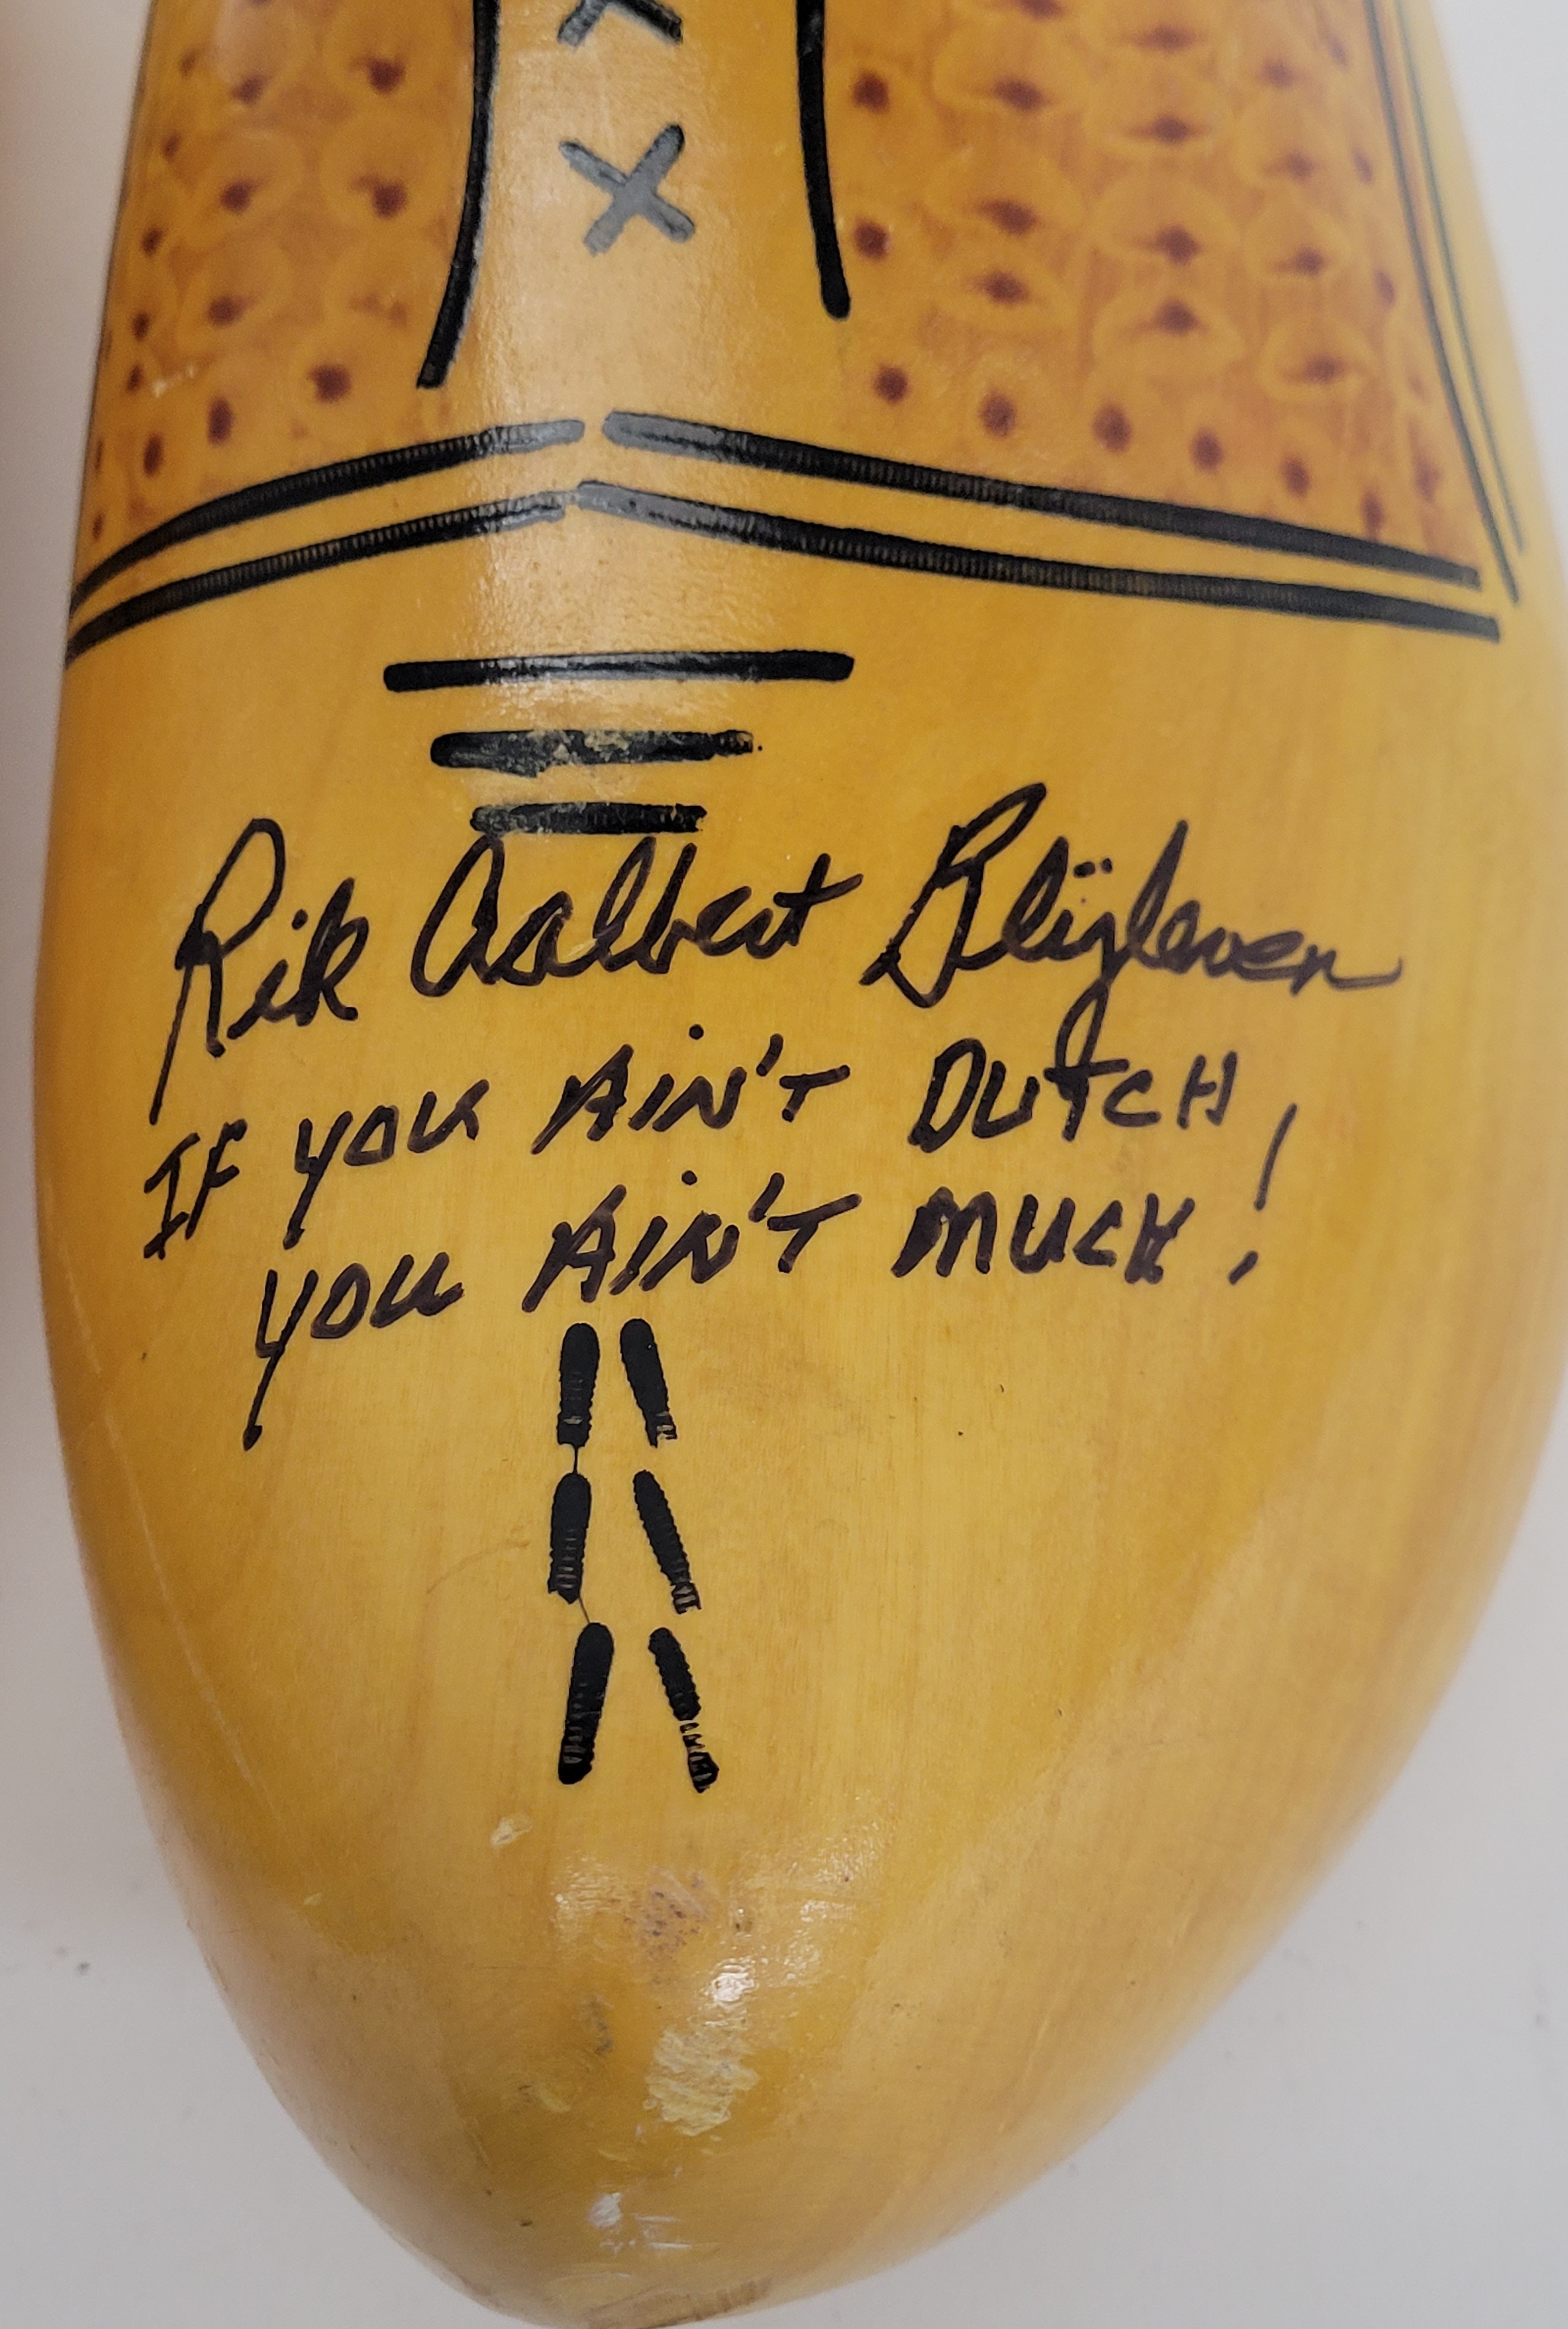 Rik Aalbert Blijleven
IF YOU AiN'T DUTCH
YOU AiN'T MUCH!